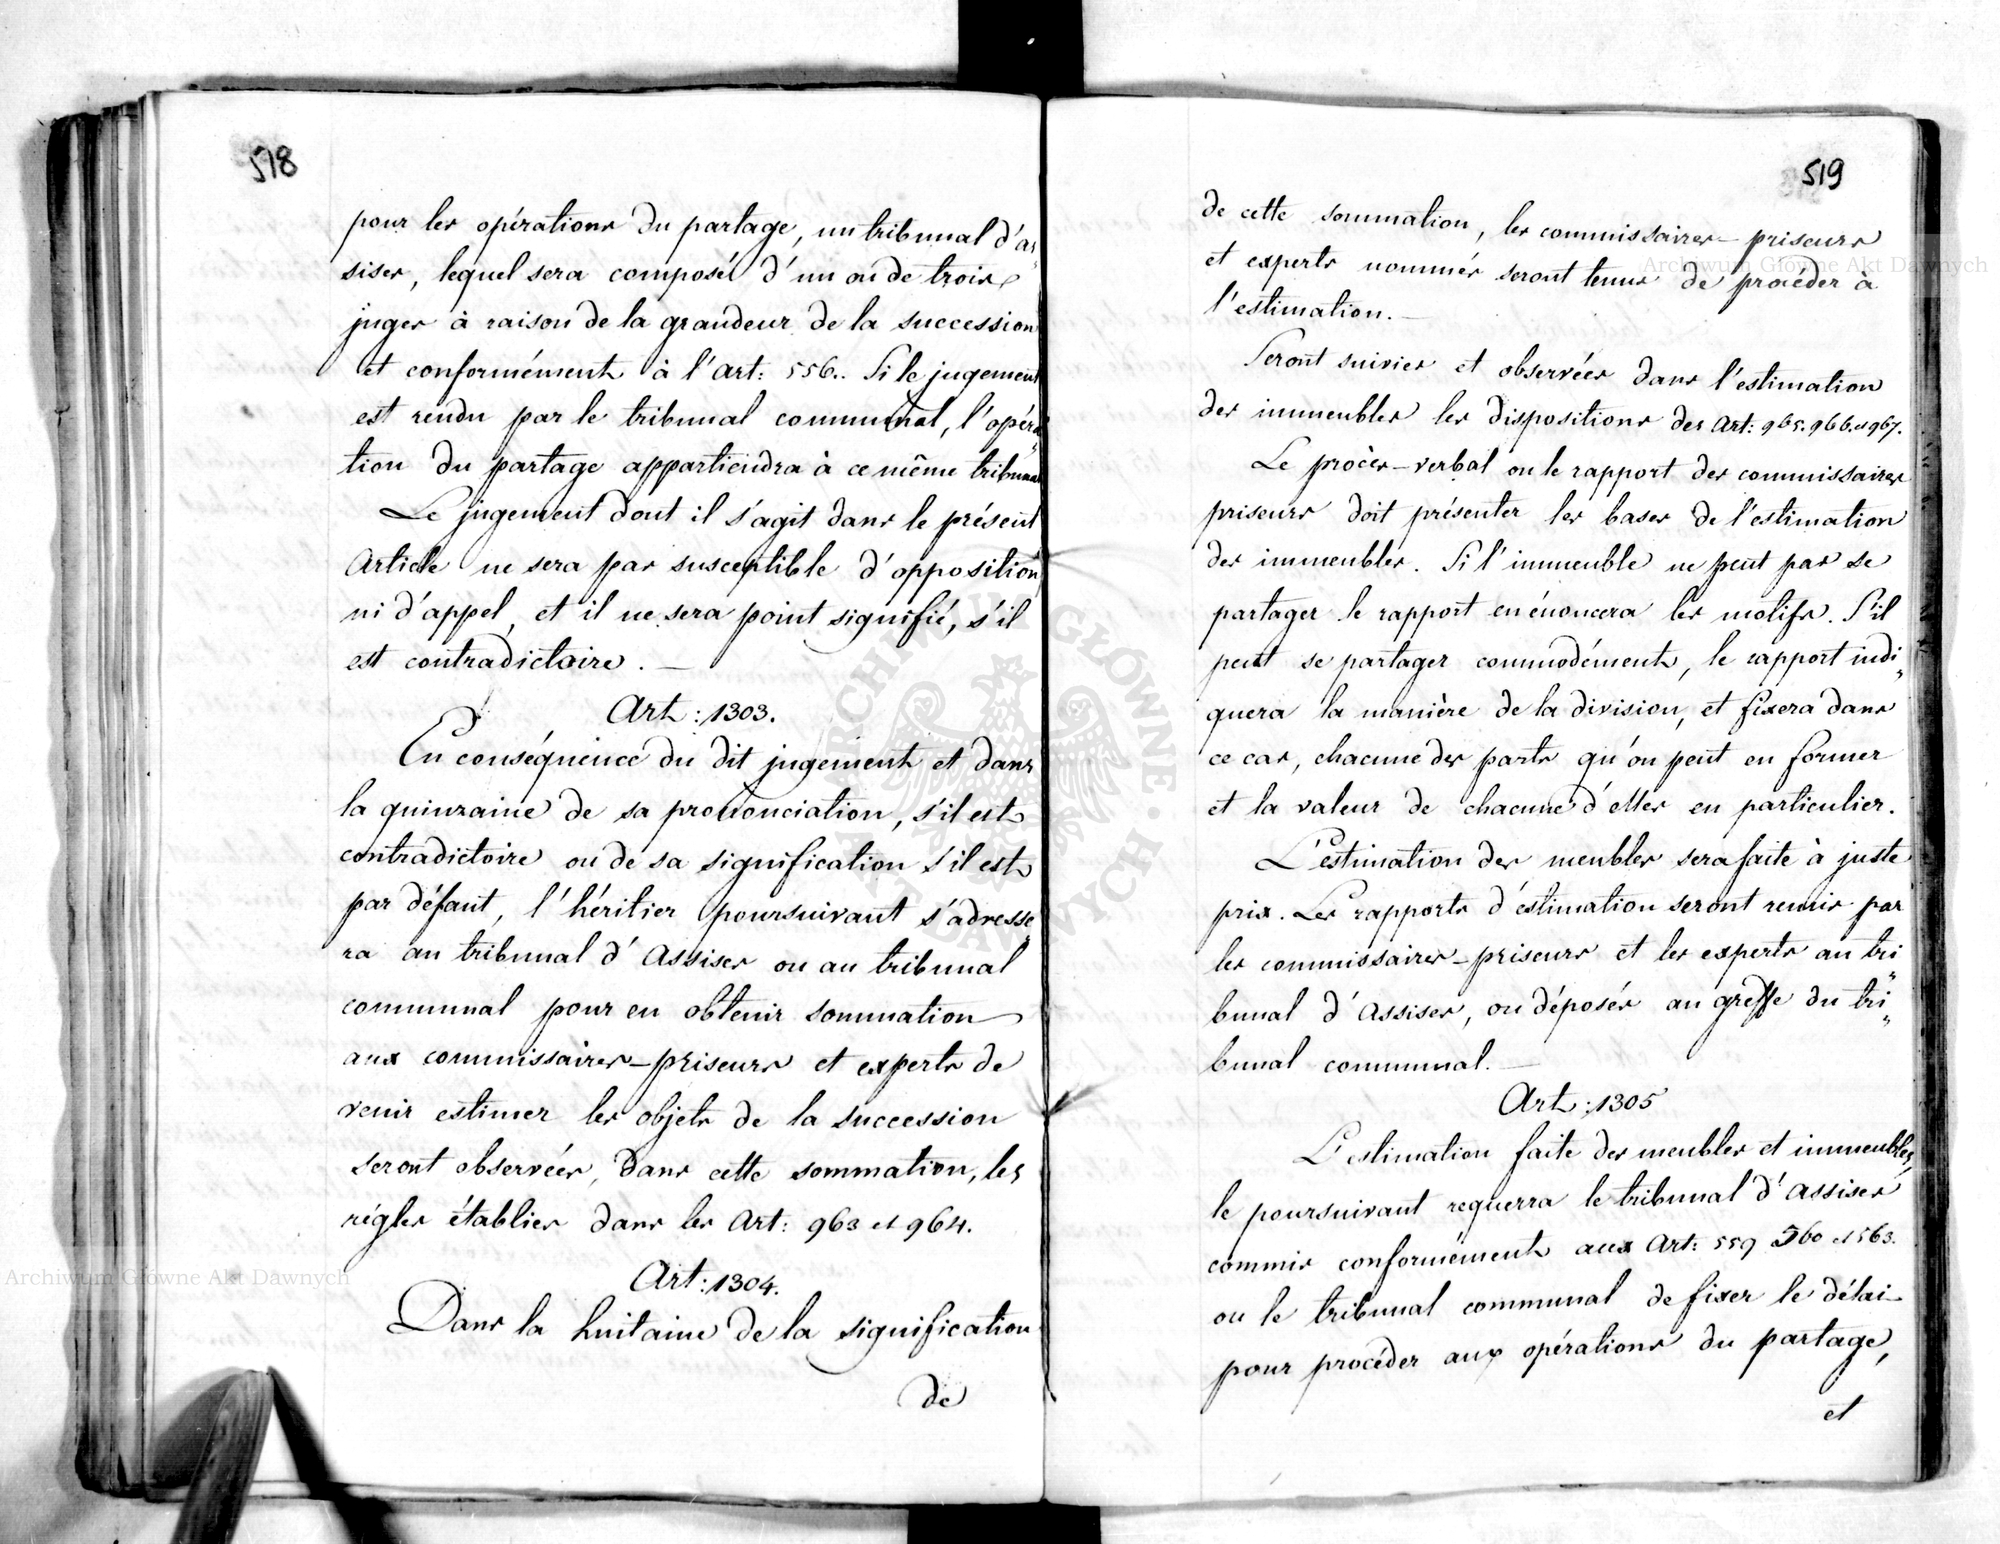 518
pour les opérations du partage, un tribunal d'as„
sises, lequel sera composé d'un ou de trois
juges à raison de la grandeur de la succession
et conformément à l'art: 556.. Si le jugement
est rendu par le tribunal communal, l'opéra„
tion du partage appartiendra à ce même tribunal
Le jugement dont il s'agit dans le présent
Article ne sera pas susceptible d'opposition
ni d'appel, et il ne sera point signifié, s'il
est contradictoire. —
Art: 1303.
En conséquence du dit jugement et dans
la quinzaine de sa prononciation, s'il est
contradictoire ou de sa signification s'il est
par défaut, l'héritier poursuivant s'adresse„
ra au tribunal d'Assises ou au tribunal
communal pour en obtenir sommation
aux commissaires-priseurs et experts de
venir estimer les objets de la succession
seront observées, dans cette sommation, les
régles établies dans les Art: 963 et 964.
Art: 1304.
Dans la huitaine de la signification
de
519
de cette sommation, les commissaires-priseurs
et experts nommés seront tenus de procéder à
l'estimation. —
Seront suivies et observées dans l'estimation
des immeubles les dispositions des Art: 965. 966. et 967.
Le procès-verbal ou le rapport des commissaires
priseurs doit présenter les bases de l'estimation
des immeubles. Si l'immeuble ne peut pas se
partager le rapport en énoncera les motifs. S'il
peut se partager commodément, le rapport indi„
quera la manière de la division, et fixera dans
ce cas, chacune des parts qu'on peut en former
et la valeur de chacune d'elles en particulier.
L'estimation des meubles sera faite à juste
prix. Les rapports d'estimation seront remis par
les commissaires-priseurs et les experts au tri„
bunal d'Assises, ou déposés au greffe du tri„
bunal communal. —
Art: 1305
L'estimation faite des meubles et immeubles,
le poursuivant requerra le tribunal d'Assises
commis conformément aux Art: 559 560 et 563.
ou le tribunal communal de fixer le délai
pour procéder aux opérations du partage,
et
Archiwum Główne Akt Dawnych
Archiwum Główne Akt Dawnych
ARCHIWUM GŁÓWNE AKT DAWNYCH